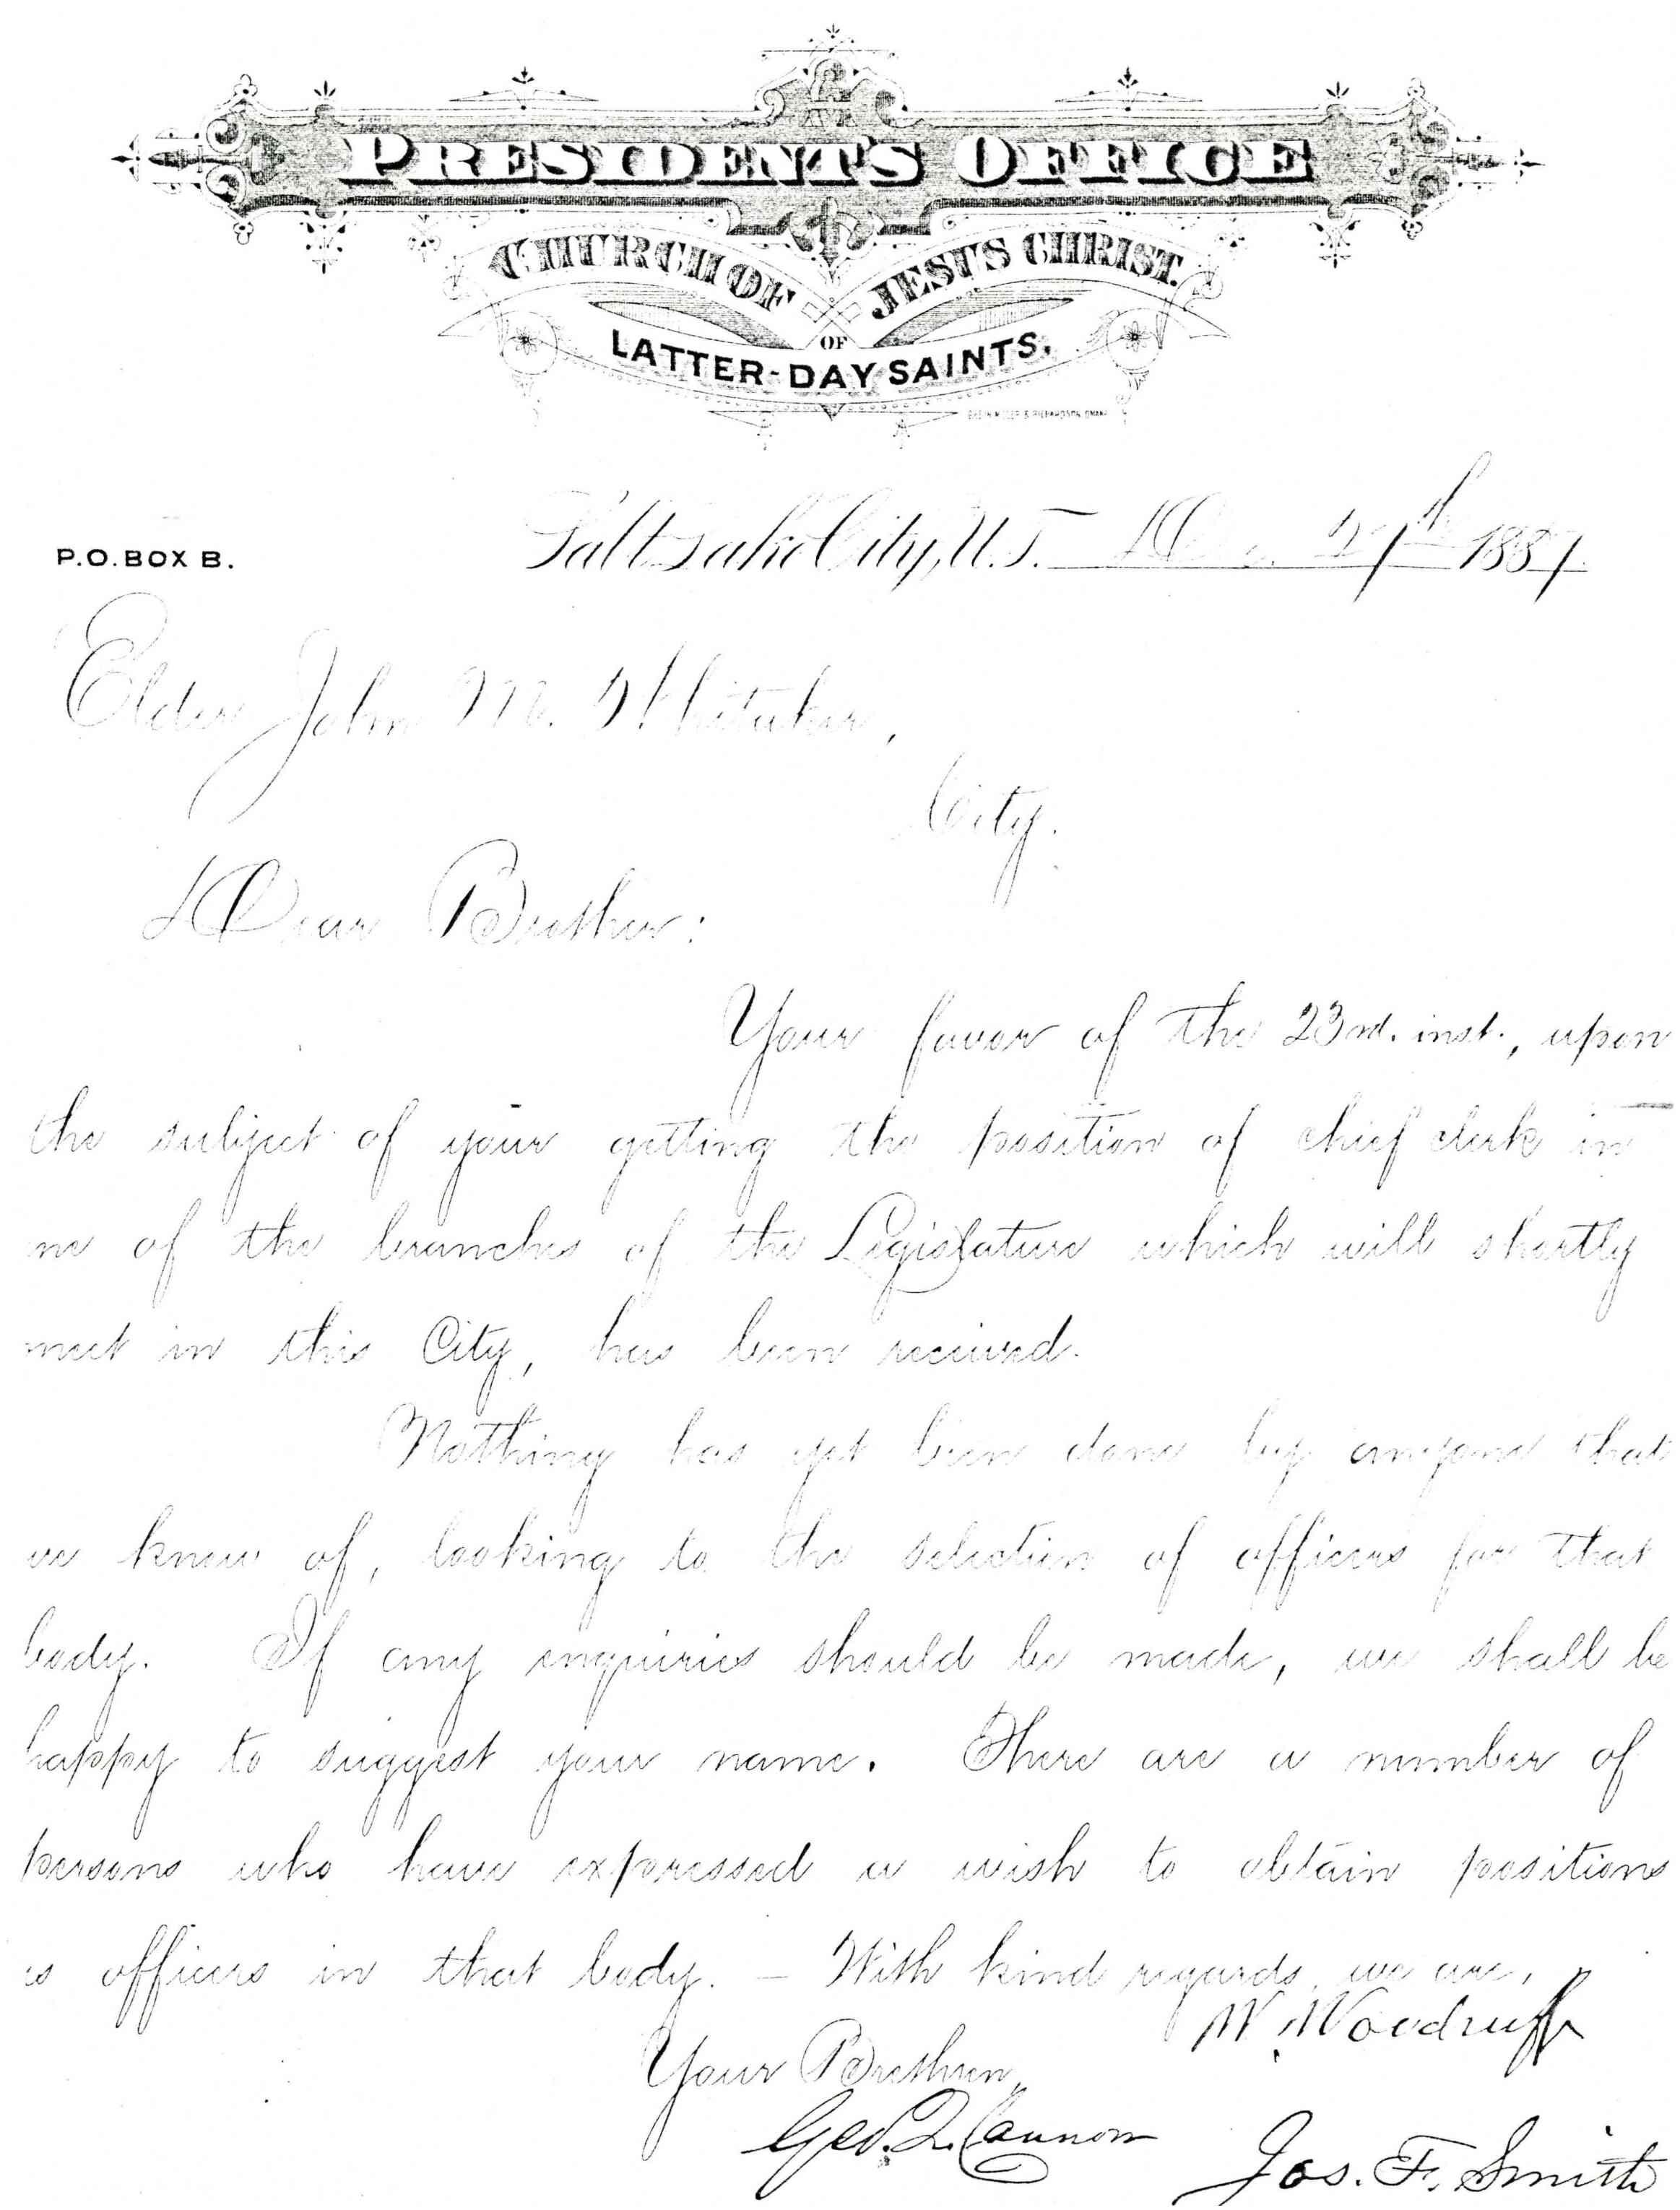 PRESIDENT'S OFFICE
CHURCH OF JESUS CHRIST.
OF
LATTER-DAY SAINTS.
P.O. BOX B.
Salt Lake City, U.T. Dec. 27th 1887.
Elder John M. Whitaker,
City.
Dear Brother:
Your favor of the 23rd. inst., upon
the subject of your getting the position of chief clerk in
ne of the branches of the Legislature which will shortly
meet in this City, has been received.
Nothing has yet been done by anyone that
we know of, looking to the selection of officers for that
body. If any inquiries should be made, we shall be
happy to suggest your name. There are a number of
persons who have expressed a wish to obtain positions
as officers in that body. — With kind regards, we are,
W. Woodruff
Your Brethren,
Geo. Q. Cannon
Jos. F. Smith